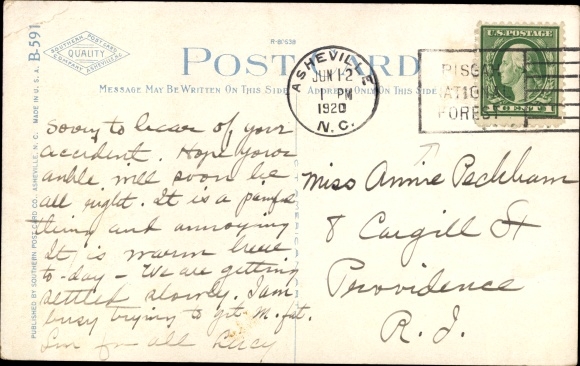 B-591
SOUTHERN POST CARD
QUALITY
COMPANY ASHEVILLE
R-81538
POST CARD
MESSAGE MAY BE WRITTEN ON THIS SIDE
ADDRESS ONLY ON THIS SIDE
ASHEVILLE
JUN 12
1 PM
1920
N.C.
PISGAH
NATIONAL
FOREST
U.S. POSTAGE
1 CENT 1
PUBLISHED BY SOUTHERN POST CARD CO., ASHEVILLE, N. C. MADE IN U. S. A.
Sorry to hear of your
accident. Hope your
ankle will soon be
all right. It is a painful
thing and annoying
It is warm here
to-day - We are getting
settled slowly. I am
busy trying to get M. fat.
Luv for all Lucy
Miss Annie Peckham
8 Cargill St
Providence
R. I.